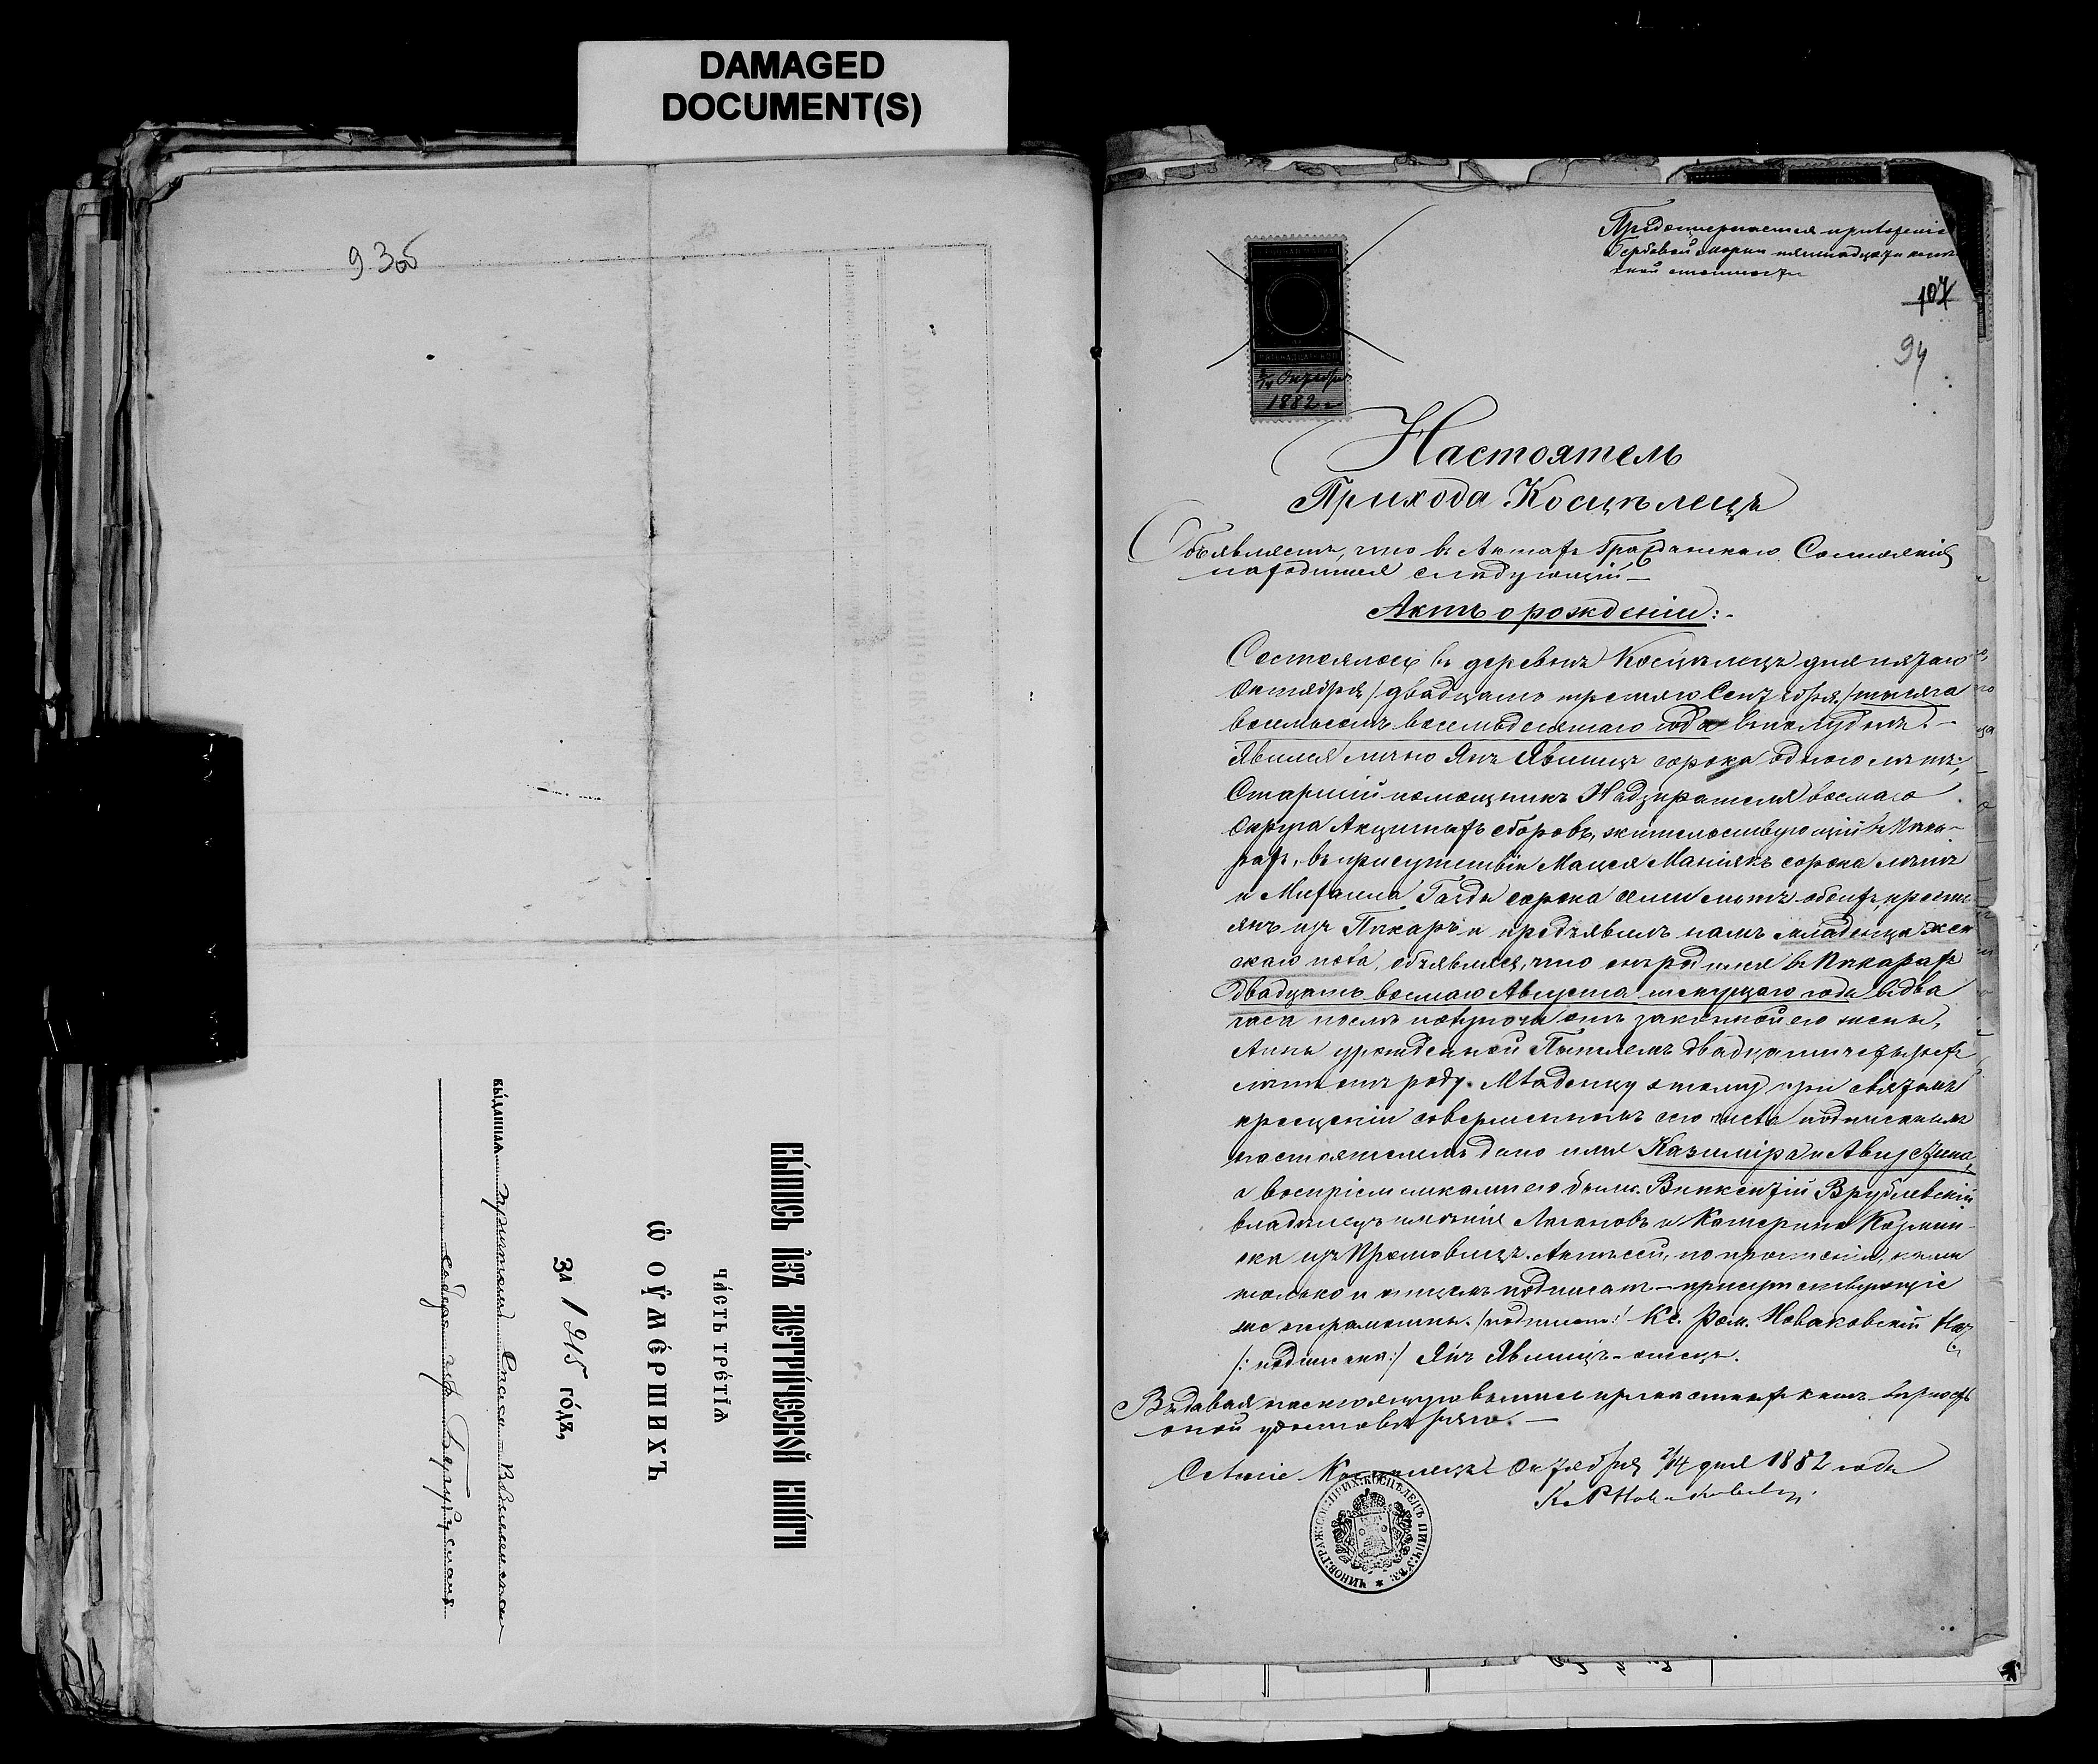 DAMAGED
DOCUMENT(S)
93об
ВЫ́ПИСЬ И҆ЗЪ МЕТРИ́ЧЕСКОЙ КНИ́ГИ
ЧА́СТЬ ТРЕ́ТІѦ
Ѡ ОУ҆МЕ́РШИХЪ
ЗА 1915 го́дъ,
вы́данная причтомъ Спасо
собора гор.
107
94
ПЯТНАДЦАТ КОП
2/14 Октября
1882 г
Настоятель
Прихода Косцѣлецъ
Объявляетъ, что въ Актахъ Гражданскаго Состоянія
находится слѣдующій —
Актъ о рожденіи:-
Состоялось въ деревнѣ Косцѣлецъ дня пятаго
Октября /двадцать третяго Сентября/ тысяча
восемьсотъ восемьдесятаго года въ полудни. —
Явился лично Янъ Явницъ сорока одного лѣтъ,
Старшій помощникъ Надзирателя восмаго
Округа Акцизныхъ сборовъ, жительствующій въ Пека-
рахъ, въ присутствіи Мацея Маніякъ сорока лѣтъ
и Михаила Гайды сорока семи лѣтъ обоихъ кресть
янъ изъ Пекаръ и предъявилъ намъ младенца жен
скаго пола, объявляя, что онъ родился въ Пекарахъ
двадцать восмаго Августа текущаго года въ два
часа послѣ полуночи отъ законной его жены,
Анны урожденной двадцати четырехъ
лѣтъ отъ роду. Младенцу этому при святомъ
крещеніи совершенномъ сего числа подписаннымъ
настоятелемъ дано имя Казиміра и Августина,
а воспріемниками его были: Викентій Врублевскій
владѣлецъ имѣнія и Катерина Козмин-
ска изъ Актъ сей, по прочтеніи, нами
только и отцемъ подписанъ — присутствующіе
неграмотны. /подписали/ Кс. Ром. Новаковскій Наст
/:подписано:/ Янъ Явницъ — отецъ.
Выдавая настоящую выпись вѣрность
оной удостовѣряю. —
Селеніе Косцѣлецъ Октября 2/14 дня 1882 года
ЧИНОВ: ГРАЖ: СОС: ПРИХ: КОСЦѢЛЕЦЪ ПИНЧ: УѢЗ: ★